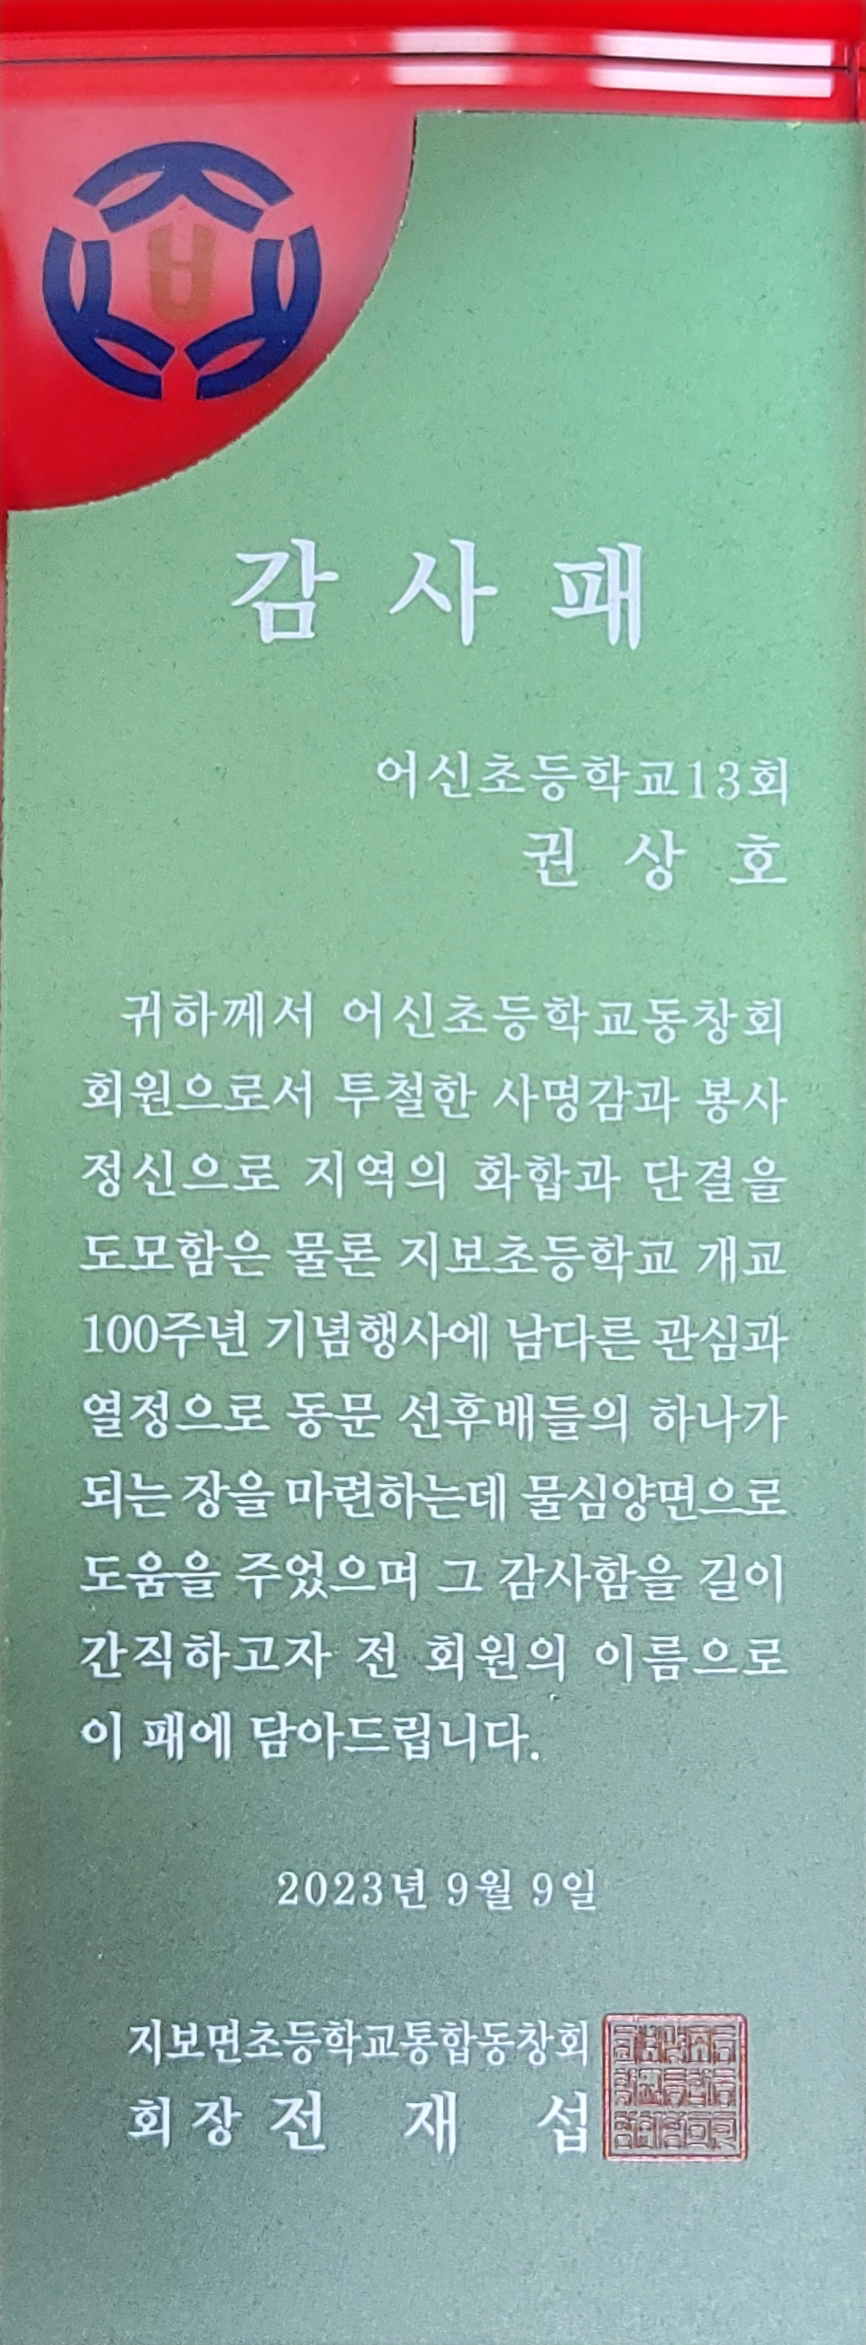 감 사 패
어신초등학교13회
권 상 호
귀하께서 어신초등학교동창회
회원으로서 투철한 사명감과 봉사
정신으로 지역의 화합과 단결을
도모함은 물론 지보초등학교 개교
100주년 기념행사에 남다른 관심과
열정으로 동문 선후배들의 하나가
되는 장을 마련하는데 물심양면으로
도움을 주었으며 그 감사함을 길이
간직하고자 전 회원의 이름으로
이 패에 담아드립니다.
2023년 9월 9일
지보면초등학교통합동창회
회장 전 재 섭